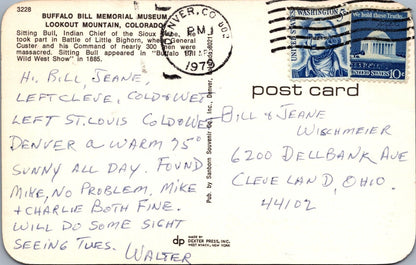 3228
BUFFALO BILL MEMORIAL MUSEUM
LOOKOUT MOUNTAIN, COLORADO
Sitting Bull, Indian Chief of the Sioux
took part in Battle of Little Bighorn General
Custer and his Command of nearly 300 men were
massacred. Sitting Bull appeared in "Buffalo
Wild West Show" in 1885.
DENVER, CO
PM
1979
WASHINGTON
UNITED STATES
We hold these Truths...
UNITED STATES 10c
post card
Pub. by Sanborn Souvenir Co., Inc., Denver,
Hi. Bill, Jeane,
Left Cleve, Cold & Wet
Left St. Louis Cold & Wet
Denver a warm 75°
Sunny all day. Found
Mike, No Problem. Mike
+ Charlie Both Fine.
Will do some sight
seeing Tues.
Walter
Bill & Jeane
Wischmeier
6200 Dellbank Ave
Cleveland, Ohio.
44102
dp
MADE BY
DEXTER PRESS, INC.
WEST NYACK, NEW YORK